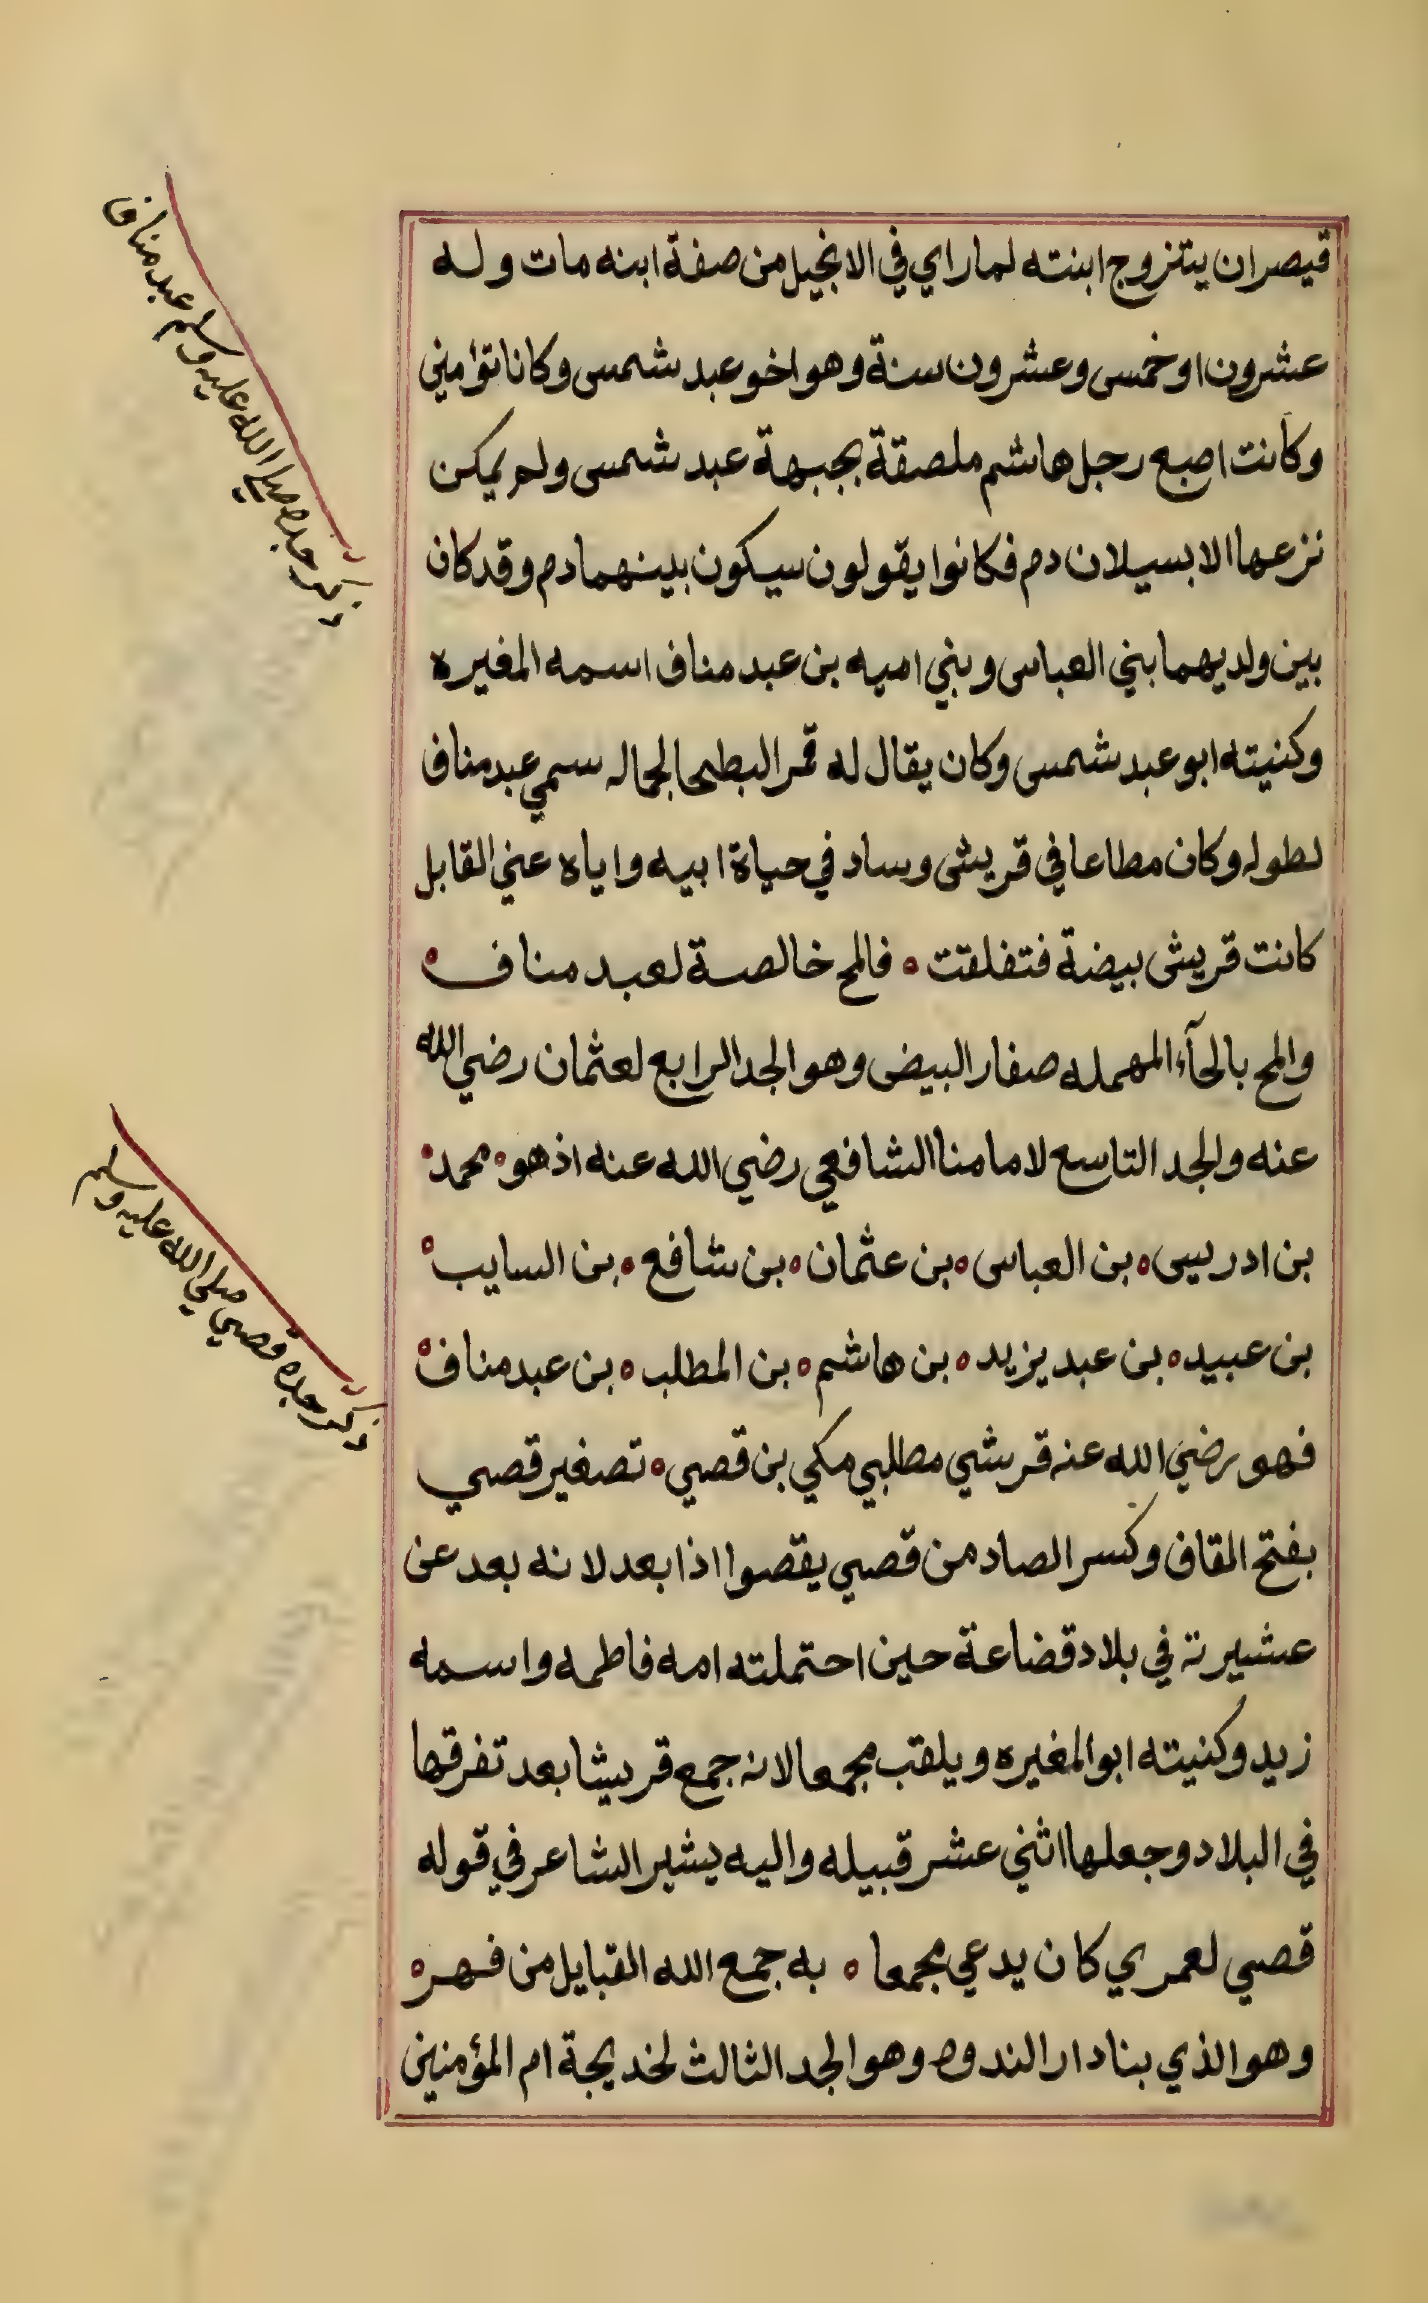 قيصران يتزوج ابنته لما راي في الانجيل من صفة ابنه مات وله
عشرون او خمس وعشرون سنة وهو اخو عبد شمس وكانا تؤامين
وكانت اصبع رجل هاشم ملصقة بجبهة عبد شمس ولم يمكن
نزعها الا بسيلان دم فكانوا يقولون سيكون بينهما دم وقد كان
بين ولديهما بني العباس وبني اميه بن عبد مناف اسمه المغيره
وكنيته ابو عبد شمس وكان يقال له قمر البطحا لجماله سمي عبد مناف
لطوله وكان مطاعا في قريش وساد في حياة ابيه واياه عني القايل
كانت قريش بيضة فتفلقت ٥ فالمح خالصة لعبد مناف ٥
والمح بالحآء المهمله صفار البيض وهو الجد الرابع لعثمان رضي الله
عنه والجد التاسع لامامنا الشافعي رضي الله عنه اذ هو ٥ محمد ٥
بن ادريس ٥ بن العباس ٥ بن عثمان ٥ بن شافع ٥ بن السايب ٥
بن عبيد ٥ بن عبد يزيد ٥ بن هاشم ٥ بن المطلب ٥ بن عبد مناف ٥
فهو رضي الله عنه قرشي مطلبي مكي بن قصي ٥ تصغير قصي
بفتح القاف وكسر الصاد من قصي يقصوا اذا بعد لانه بعد عن
عشيرته في بلاد قضاعة حين احتملته امه فاطمه واسمه
زيد وكنيته ابو المغيره ويلقب مجمعا لانه جمع قريشا بعد تفرقها
في البلاد وجعلها اثني عشر قبيله واليه يشير الشاعر في قوله
قصي لعمري كان يدعي مجمعا ٥ به جمع الله القبايل من فهر ٥
وهو الذي بنا دار الندوه وهو الجد الثالث لخديجة ام المؤمنين
ذكر جده صلي الله عليه وسلم عبد مناف
ذكر جده قصي صلي الله عليه وسلم